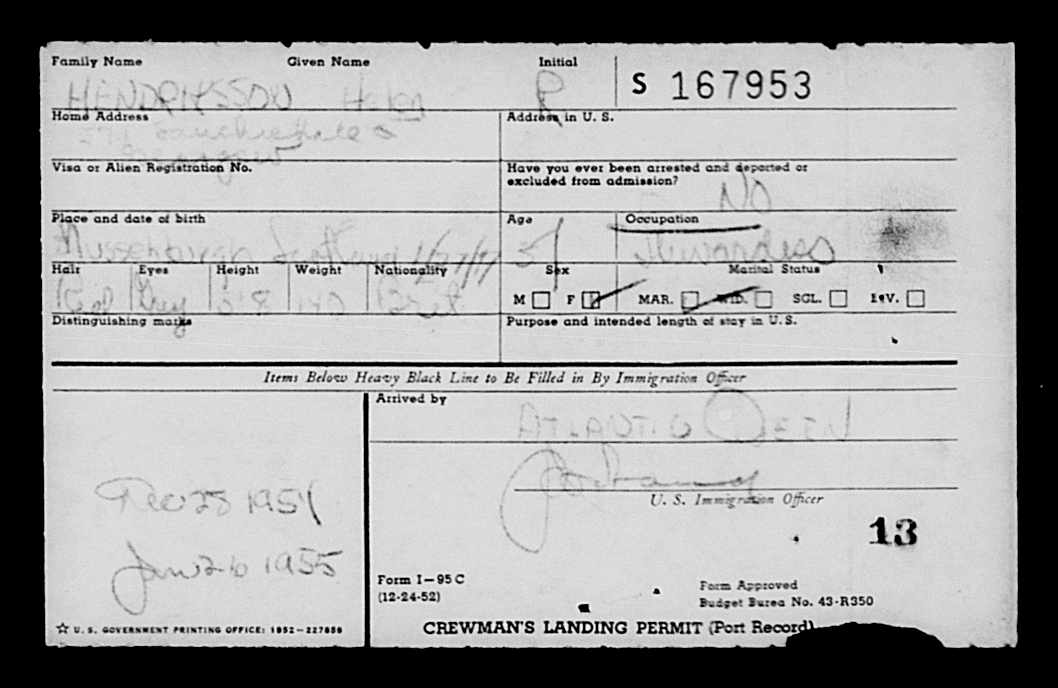 Family Name Given Name Initial
S 167953
HENDRIKSSON Helen R
Home Address Address in U. S.
Glasgow
Visa or Alien Registration No. Have you ever been arrested and deported or
excluded from admission?
NO
Place and date of birth Age Occupation
Mussenburgh Scotland Stewardess
Hair Eyes Height Weight Nationality Sex Marital Status
Red Grey 5'8 140 Brit M F MAR. WID. SGL. DIV.
Distinguishing marks Purpose and intended length of stay in U.S.
Items Below Heavy Black Line to Be Filled in By Immigration Officer
Arrived by
ATLANTIC
U. S. Immigration Officer
Dec 28 1954
13
Jan 26 1955
Form I-95 C Form Approved
(12-24-52) Budget Bureau No. 43-R350
☆ U. S. GOVERNMENT PRINTING OFFICE: 1952-227850 CREWMAN'S LANDING PERMIT (Port Record)